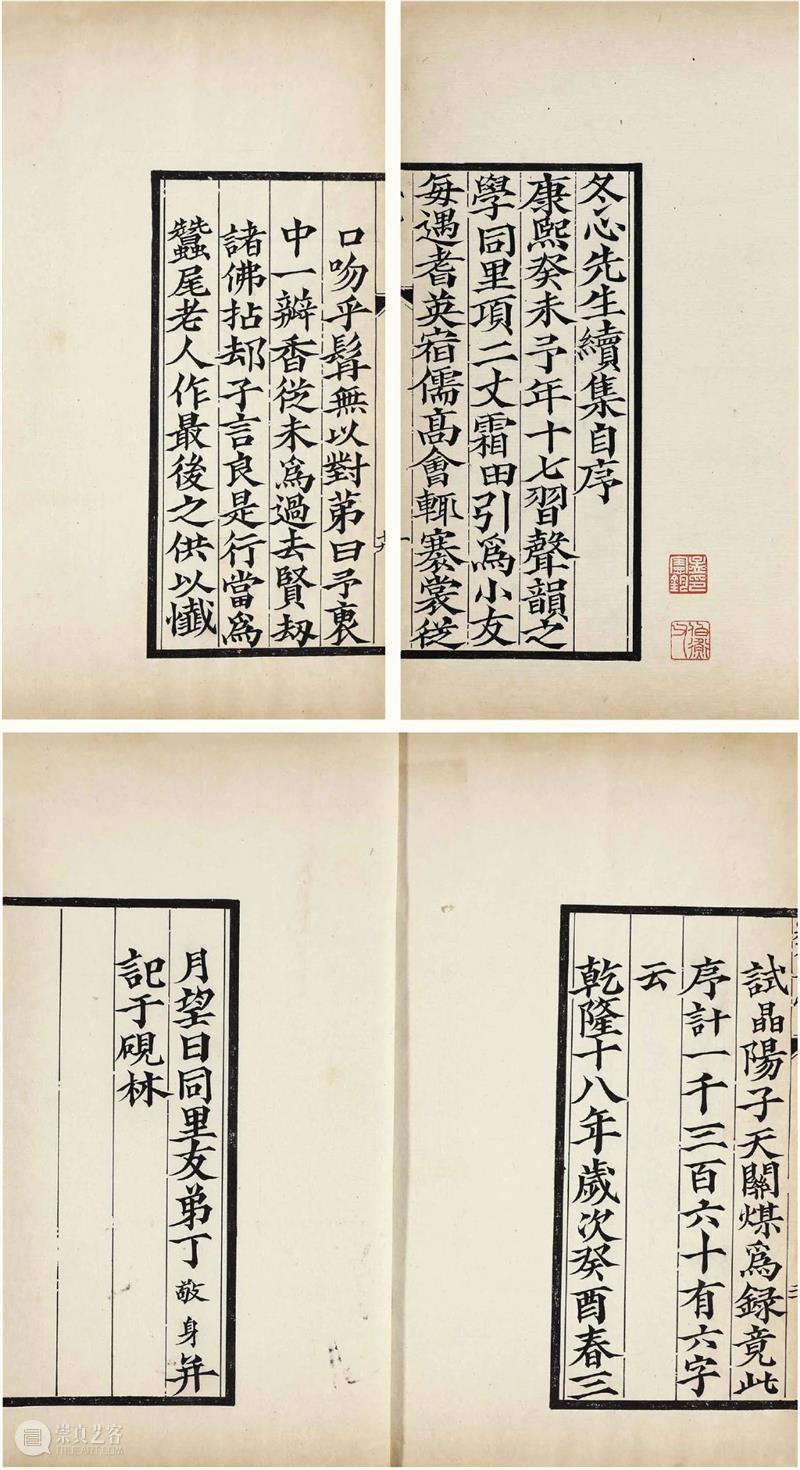 冬心先生續集自序
康熙癸未予年十七習聲韻之
學同里項二丈霜田引爲小友
每遇耆英宿儒高會輒褰裳從
口吻乎髯無以對第曰予衷
中一瓣香從未爲過去賢劫
諸佛拈却子言良是行當爲
蠶尾老人作最後之供以懺
試晶陽子天關煤爲録竟此
序計一千三百六十有六字
云
乾隆十八年歲次癸酉春三
月望日同里友弟丁敬身并
記于硯林
崇真艺客